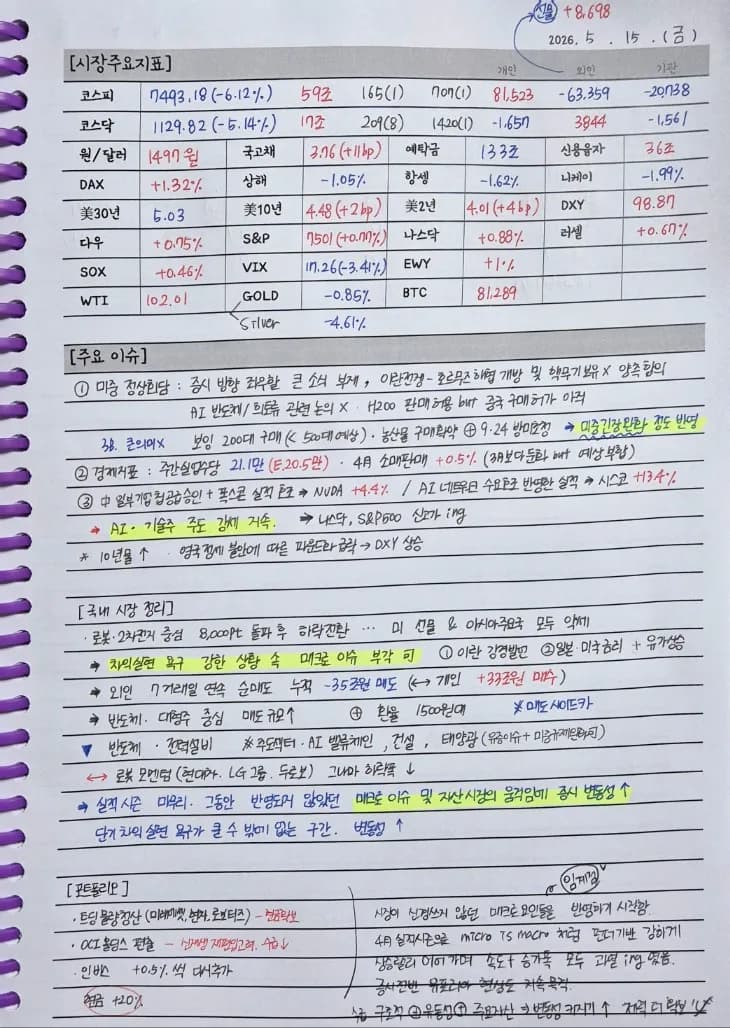 선물 +8,698
2026. 5. 15. (금)
[시장주요지표] 개인 외인 기관
코스피 7493.18 (-6.12%) 59조 165(1) 707(1) 81,523 -63,359 -20,738
코스닥 1129.82 (-5.14%) 17조 209(8) 1420(1) -1,657 3844 -1,561
원/달러 1497원 국고채 3.76 (+11bp) 예탁금 133조 신용융자 36조
DAX +1.32% 상해 -1.05% 항셍 -1.62% 니케이 -1.99%
美30년 5.03 美10년 4.48 (+2bp) 美2년 4.01 (+4bp) DXY 98.87
다우 +0.75% S&P 7501 (+0.77%) 나스닥 +0.88% 러셀 +0.67%
SOX +0.46% VIX 17.26 (-3.41%) EWY +1%
WTI 102.01 GOLD -0.85% BTC 81,289
Silver -4.61%
[주요 이슈]
① 미중 정상회담 : 증시 방향 좌우할 큰 소식 부재, 이란전쟁 - 호르무즈해협 개방 및 핵무기보유 X 양측 합의
AI 반도체/희토류 관련 논의 X · H200 판매허용 but 중국 구매허가 아직
보잉 200대 구매 (< 500대 예상) · 농산물 구매확약 ⊕ 9.24 방미요청 → 미중긴장완화 정도 반영
② 경제지표 : 주간실업수당 21.1만 (E.20.5만) · 4月 소매판매 +0.5% (3月보다 둔화 but 예상부합)
③ 中 일부기업 칩공급승인 + 폭스콘 실적 호조 → NVDA +4.4% / AI 네트워크 수요호조 반영한 실적 → 시스코 +13.4%
→ AI · 기술주 주도 강세 지속. → 나스닥, S&P500 신고가 ing
* 10년물 ↑ · 영국정세 불안에 따른 파운드화 급락 → DXY 상승
[국내 시장 정리]
· 로봇 · 2차전지 중심 8,000pt 돌파 후 하락전환 … 미 선물 & 아시아주요국 모두 약세
→ 차익실현 욕구 강한 상황 속 매크로 이슈 부각 可 ① 이란 강경발언 ② 일본 · 미국금리 + 유가상승
→ 외인 7거래일 연속 순매도 누적 -35조원 매도 (↔ 개인 +33조원 매수)
→ 반도체 · 대형주 중심 매도 규모 ↑ ⊕ 환율 1500원대 ※ 매도사이드카
▼ 반도체 · 전력설비 ※ 주도섹터 · AI 밸류체인, 건설, 태양광
↔ 로봇 모멘텀 (현대차 · LG그룹 · 두로보) 그나마 하락폭 ↓
→ 실적시즌 마무리 · 그동안 반영되지 않았던 매크로 이슈 및 자산시장의 움직임에 증시 변동성 ↑
단기 차익 실현 욕구가 클 수 밖에 없는 구간. 변동성 ↑
[포트폴리오]
· 트딩 물량청산 - 현금확보
· OCI홀딩스 편출
· 인버스 +0.5% 씩 다시추가
현금 +20%
임계점
시장이 신경쓰지 않던 매크로 요인들을 반영하기 시작함.
4月 실적시즌으로 micro is macro 처럼 펀더기반 강하게
상승랠리 이어가며 속도 + 숨가쁨 모두 과열 ing 였음.
증시전반 유포리아 현상도 지속 목격.
구조적 유동성 주요자산 → 변동성 커지기 ↑